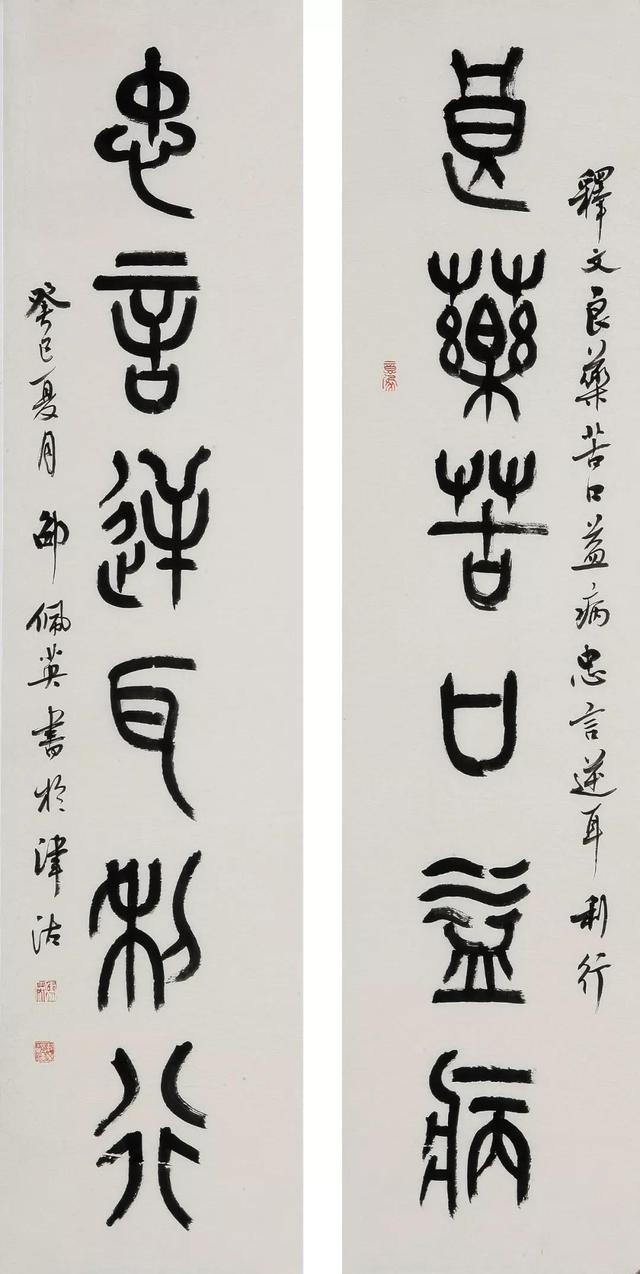 釋文良藥苦口益病忠言逆耳利行
良藥苦口益病
忠言逆耳利行
癸巳夏月佩英書於津沽